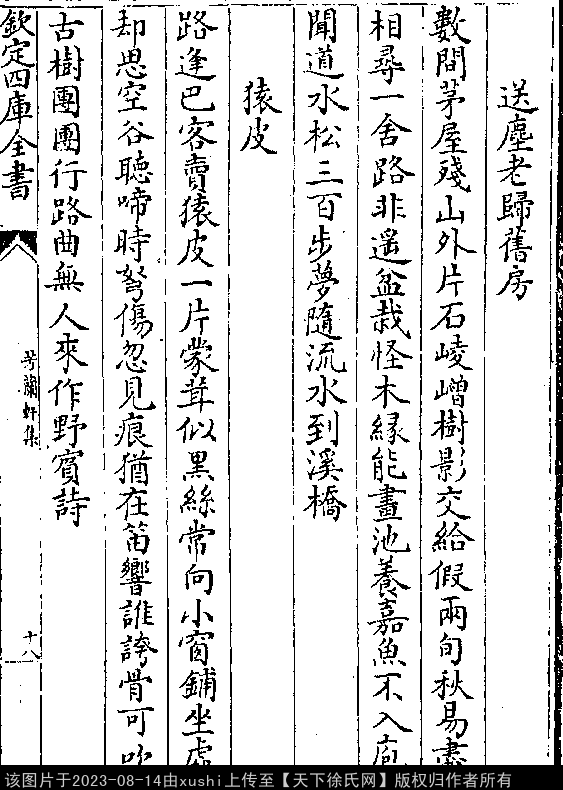 送塵老歸舊房
數間茅屋殘山外片石崚嶒樹影交給假兩旬秋易盡
相尋一舍路非遥盆栽怪木緣能畫池養嘉魚不入庖
聞道水松三百步夢隨流水到溪橋
猿皮
路逢巴客賣猿皮一片蒙茸似黒絲常向小窗鋪坐處
却思空谷聽啼時弩傷忽見痕猶在笛響誰誇骨可吹
古樹團團行路曲無人來作野賓詩
欽定四庫全書
芳蘭軒集
十八
该图片于2023-08-14由xushi上传至【天下徐氏网】版权归作者所有